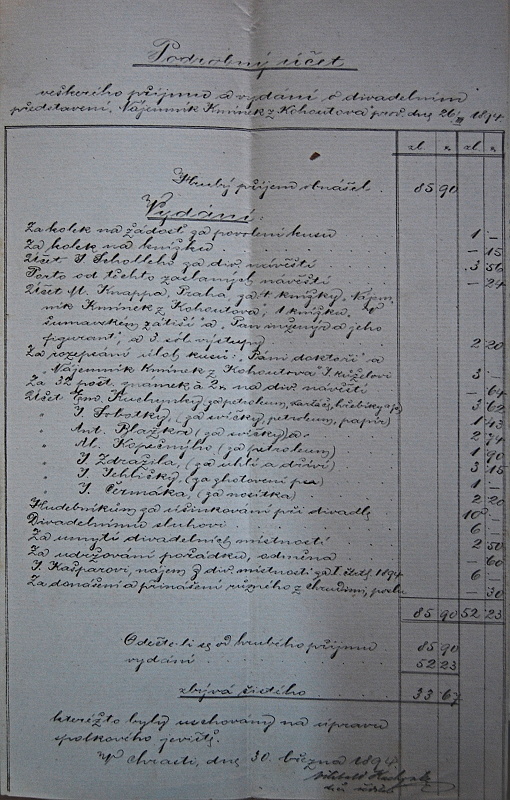 Podrobný účet
veškerého příjmu a vydání o divadelním
představení, Nájemník Kmínek z Kohoutova" prov. dne 26/III 1894.
zl. k. zl. k.
Hrubý příjem obnášel . 85 90
Vydání:
Za kolek na žádost za povolení kusu 1 –
Za kolek na knížku – 15
Účet I Scholleho za div. návěstí 3 56
Porto od těchto zaslaných návěstí – 24
Účet M. Knappa, Praha, za 1 knížky, Nájem-
ník Kmínek z Kohoutova, 1 knížku, V
šumavském zátiší a, Pan inženýr a jeho
figurant, a 3 sól. výstupy 2 20
Za rozepsání úloh kusu: Páni doktoři a
Nájemník Kmínek z Kohoutova" 3 –
Za 32 pošt. známek à 2k na div. návěstí – 64
Účet Em. Kuchynky za petrolum, hřebíky 3 62
" I Sobotky (za svíčky, petroleum, papír) 1 43
" Ant. Blažka, (za svíčky) a 2 74
" Al. Kopečného (za petroleum) 1 90
" I Zdražila, (za uhlí a dříví) 3 15
" I Jehličky, (za zhotovení psa) 1 –
" I. Čermáka, (za nosítka) 2 20
Hudebníkům za účinkování při divadle 10 –
Divadelnímu sluhovi 6 –
Za umytí divadelních místností 2 50
Za udržování pořádku, odměna – 60
I. Kašparovi, nájem z div. místnosti za 1894 6 –
Za donášení a přinášení různého z Chrudimi, – 30
85 90 52 23
Odečte-li se od hrubého příjmu 85 90
vydání 52 23
zbývá čistého 33 67
kteréžto byly uschovány na úpravu
spolkového jeviště.
V Chrasti, dne 30. března 1894.